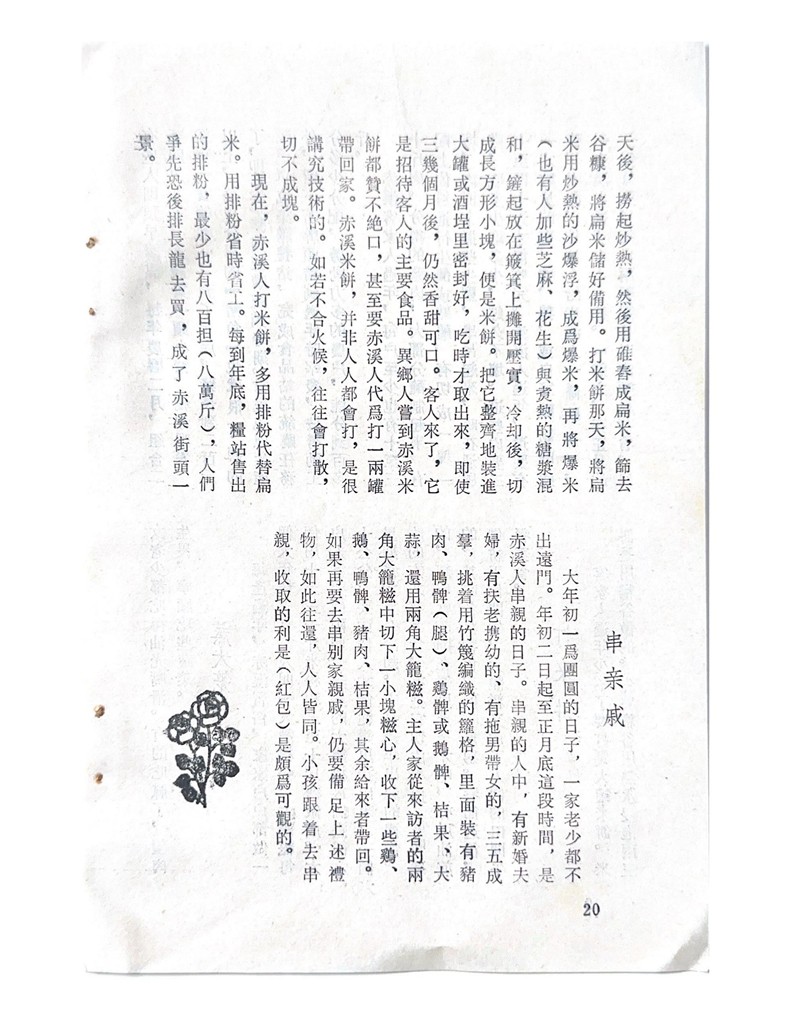 天後，撈起炒熱，然後用碓舂成扁米，篩去
谷糠，將扁米儲好備用。打米餅那天，將扁
米用炒熱的沙爆浮，成爲爆米，再將爆米
（也有人加些芝麻、花生）與煑熱的糖漿混
和，鏟起放在簸箕上攤開壓實，冷却後，切
成長方形小塊，便是米餅。把它整齊地裝進
大罐或酒埕里密封好，吃時才取出來，即使
三幾個月後，仍然香甜可口。客人來了，它
是招待客人的主要食品。異鄉人嘗到赤溪米
餅都贊不絶口，甚至要赤溪人代爲打一兩罐
帶回家。赤溪米餅，并非人人都會打，是很
講究技術的。如若不合火候，往往會打散，
切不成塊。
現在，赤溪人打米餅，多用排粉代替扁
米。用排粉省時省工。每到年底，糧站售出
的排粉，最少也有八百担（八萬斤），人們
爭先恐後排長龍去買，成了赤溪街頭一
景。
串亲戚
大年初一爲團圓的日子，一家老少都不
出遠門。年初二日起至正月底這段時間，是
赤溪人串親的日子。串親的人中，有新婚夫
婦，有扶老携幼的、有拖男帶女的，三五成
羣，挑着用竹篾編織的籮格，里面裝有豬
肉、鴨髀（腿）、鷄髀或鵝髀、桔果、大
蒜，還用兩角大籠糍。主人家從來訪者的兩
角大籠糍中切下一小塊糍心，收下一些鷄、
鵝、鴨髀、豬肉、桔果，其余給來者帶回。
如果再要去串别家親戚，仍要備足上述禮
物，如此往還，人人皆同。小孩跟着去串
親，收取的利是（紅包）是頗爲可觀的。
20